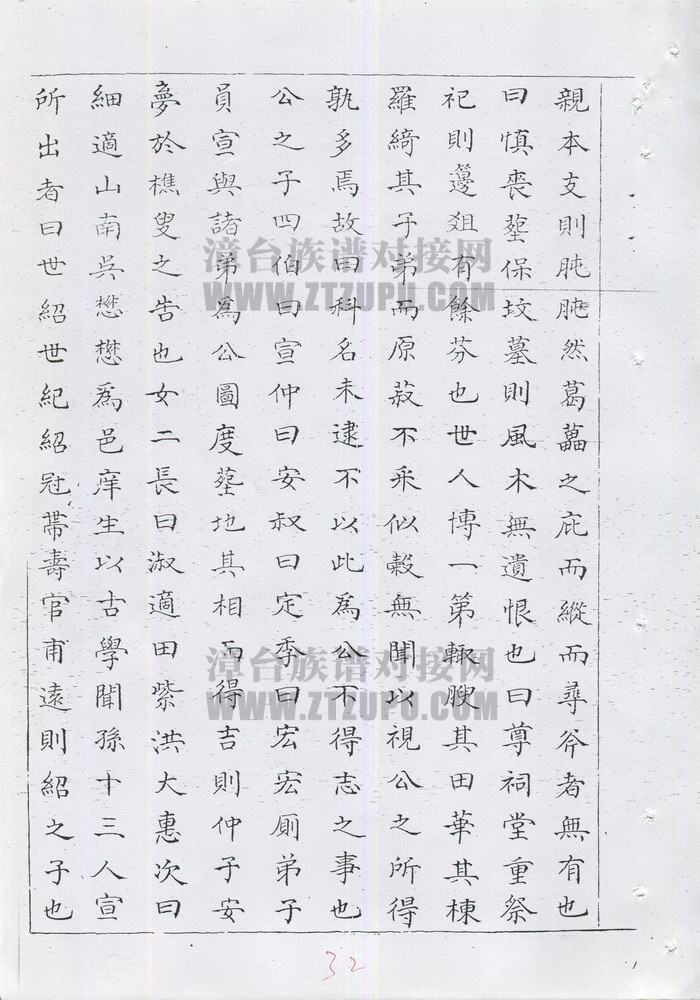 親本支則肫肫然葛藟之庇而縱而尋斧者無有也
曰慎喪塟保坟墓則風木無遺恨也曰尊祠堂重祭
祀則籩俎有餘芬也世人博一第輒腴其田華其棟
羅綺其子弟而原菽不采似穀無聞以視公之所得
孰多焉故曰科名未逮不以此為公不得志之事也
公之子四伯曰宣仲曰安叔曰定季曰宏宏廁弟子
員宣與諸弟為公圖度塟地其相而得吉則仲子安
夢於樵叟之告也女二長曰淑適田紫洪大惠次曰
細適山南吳懋懋為邑庠生以古學聞孫十三人宣
所出者曰世紹世紀紹冠帶壽官甫遠則紹之子也
漳台族谱对接网
WWW.ZTZUPU.COM
漳台族谱对接网
WWW.ZTZUPU.COM
32